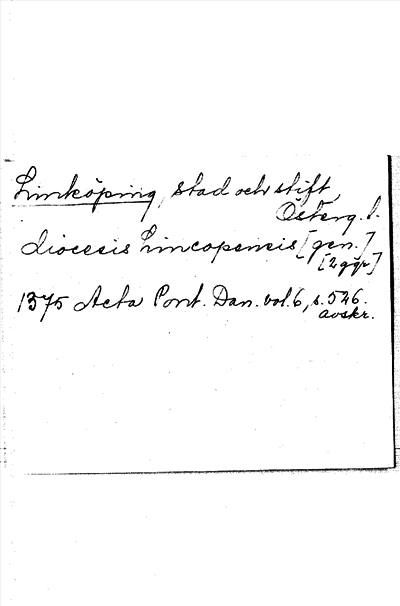 Linköping, stad och stift,
Österg. l.
diocesis Lincopensis [gen.]
[2 ggr]
1375 Acta Pont. Dan. vol. 6, s. 546.
avskr.